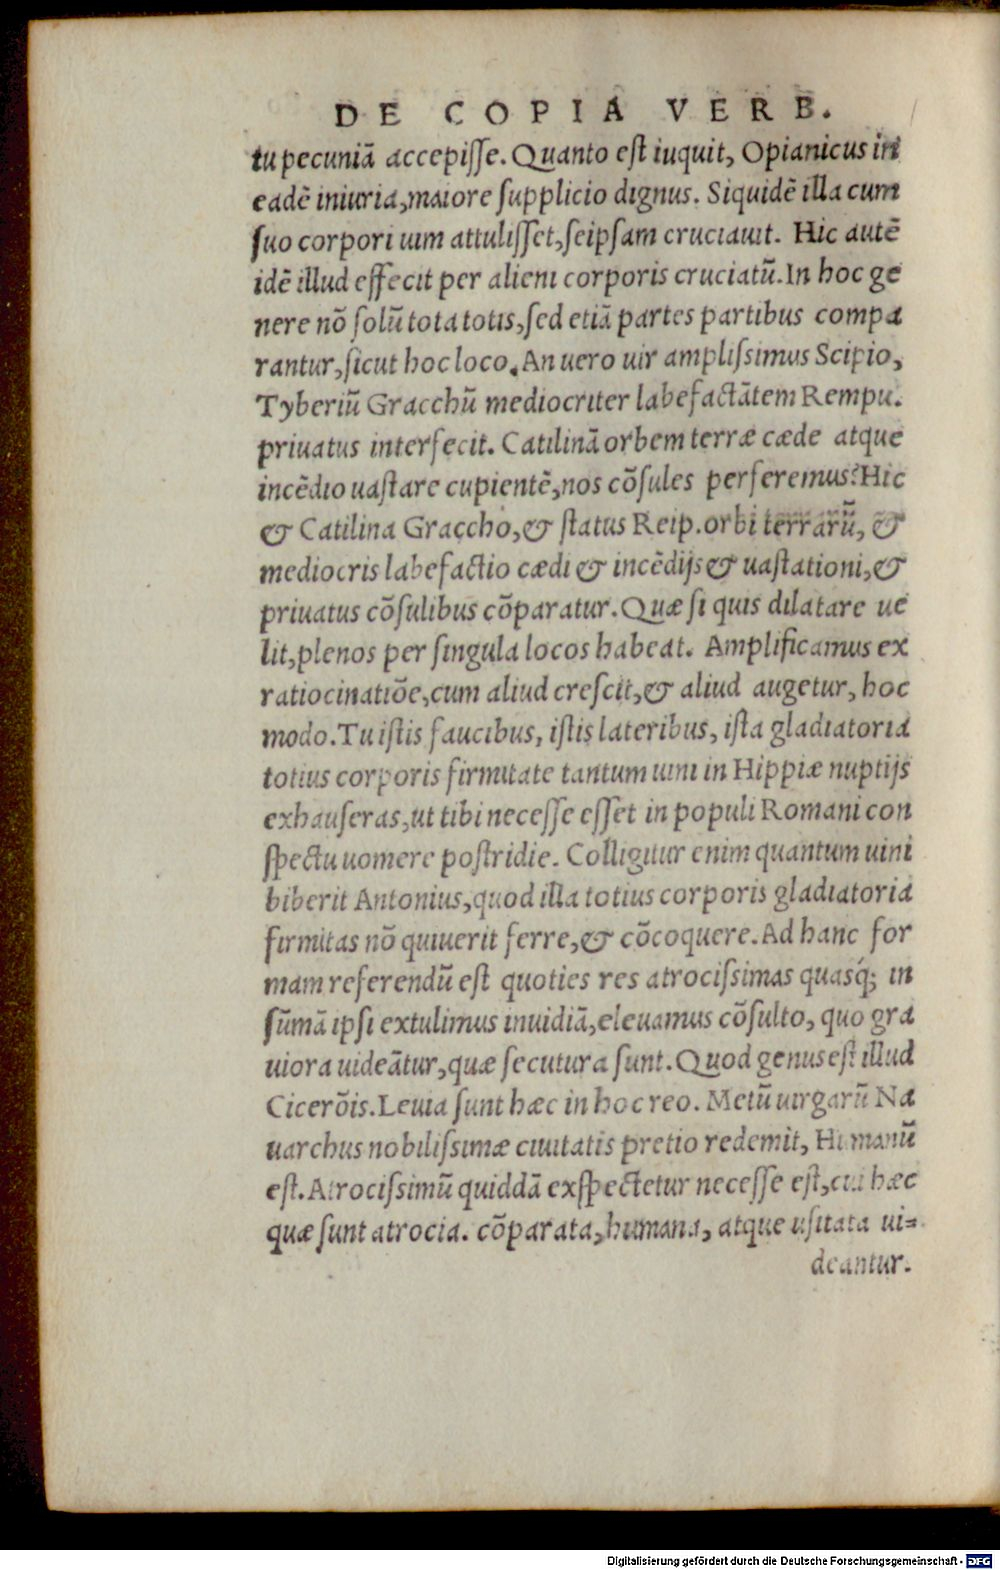 DE COPIA VERB.
tu pecuniã accepiſſe. Quanto eſt iuquit, Opianicus in
eadẽ iniuria, maiore ſupplicio dignus. Siquidẽ illa cum
ſuo corpori uim attuliſſet, ſeipſam cruciauit. Hic autẽ
idẽ illud effecit per alieni corporis cruciatũ. In hoc ge
nere nõ ſolũ tota totis, ſed etiã partes partibus compa
rantur, ſicut hoc loco. An uero uir ampliſsimus Scipio,
Tyberiũ Gracchũ mediocriter labefactãtem Rempu.
priuatus interfecit. Catilinã orbem terræ cæde atque
incẽdio uaſtare cupientẽ, nos cõſules perferemus? Hic
& Catilina Graccho, & ſtatus Reip. orbi terrarũ, &
mediocris labefactio cædi & incẽdijs & uaſtationi, &
priuatus cõſulibus cõparatur. Quæ ſi quis dilatare ue
lit, plenos per ſingula locos habeat. Amplificamus ex
ratiocinatiõe, cum aliud creſcit, & aliud augetur, hoc
modo. Tu iſtis faucibus, iſtis lateribus, iſta gladiatoria
totius corporis firmitate tantum uini in Hippiæ nuptijs
exhauſeras, ut tibi neceſſe eſſet in populi Romani con
ſpectu uomere poſtridie. Colligitur enim quantum uini
biberit Antonius, quod illa totius corporis gladiatoria
firmitas nõ quiuerit ferre, & cõcoquere. Ad hanc for
mam referendũ eſt quoties res atrociſsimas quasq́; in
ſũmã ipſi extulimus inuidiã, eleuamus cõſulto, quo gra
uiora uideãtur, quæ ſecutura ſunt. Quod genus eſt illud
Cicerõis. Leuia ſunt hæc in hoc reo. Metũ uirgarũ Na
uarchus nobiliſsimæ ciuitatis pretio redemit, Humanũ
eſt. Atrociſsimũ quiddã exſpectetur neceſſe eſt, cui hæc
quæ ſunt atrocia. cõparata, humana, atque uſitata ui=
deantur.
Digitalisierung gefördert durch die Deutsche Forschungsgemeinschaft - DFG